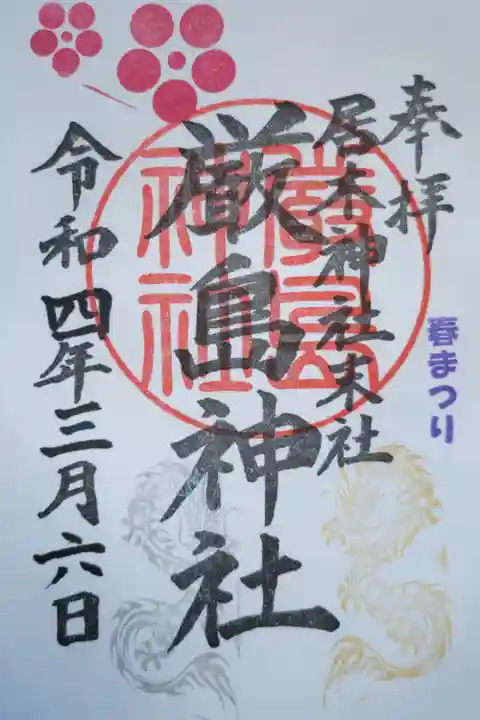 奉拝
春まつり
居木神社末社
厳島神社
嚴島神社
令和四年三月六日